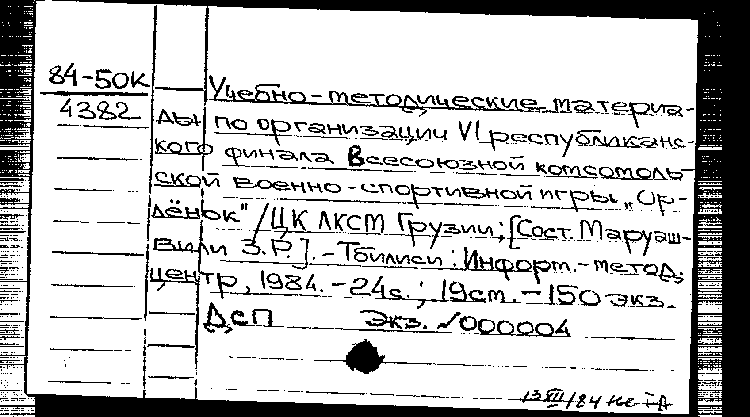 84-50К
4382
Учебно-методические материа-
лы по организации VI республиканс-
кого финала Всесоюзной комсомоль-
ской военно-спортивной игры „Ор-
лёнок"/ЦК ЛКСМ Грузии; [Сост. Маруаш-
вили З.Р.]. -Тбилиси: Информ.-метод.
центр, 1984. - 24с.; 19см. - 150 экз.
ДСП Экз. №000004
13 XII/84